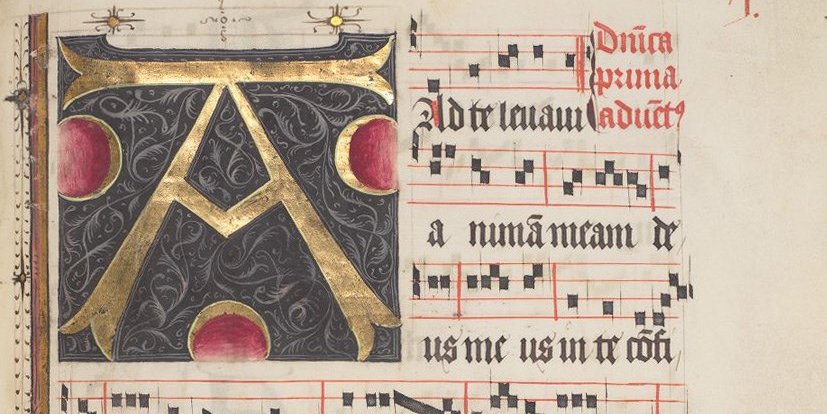 Dn̄ica
prima
Ad te leuaui aduēt⁹
a nimā meam de
us me us in te cōfi